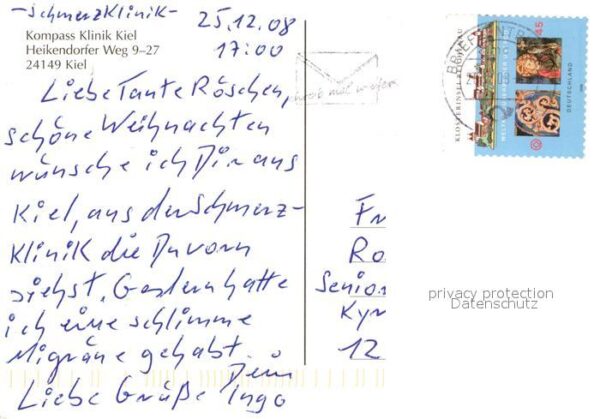 -Schmerzklinik-
25.12.08
17:00
Kompass Klinik Kiel
Heikendorfer Weg 9–27
24149 Kiel
Liebe Tante Röschen,
schöne Weihnachten
wünsche ich Dir aus
Kiel, aus der Schmerz-
klinik die Du vorn
siehst. Gestern hatte
ich eine schlimme
Migräne gehabt.
Liebe Grüße Dein Ingo
Fr
Ro
Senior
Kyr
12
privacy protection
Datenschutz
KLOSTERINSEL REICHENAU
DEUTSCHLAND
45